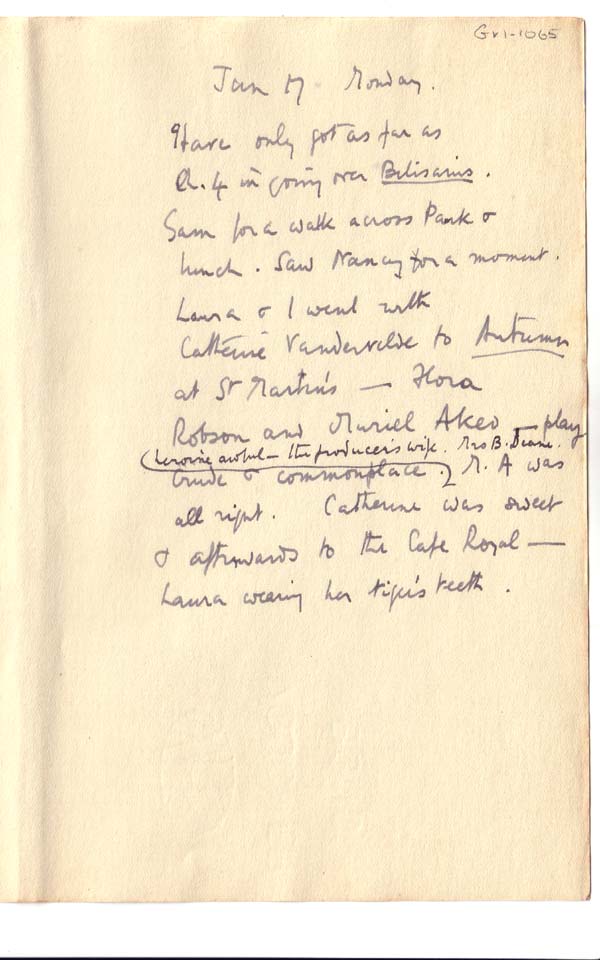 Gr1-1065
Jan 17 Monday.
Have only got as far as
Ch. 4 in going over Belisarius.
Sam for a walk across Park &
lunch. Saw Nancy for a moment.
Laura & I went with
Catherine Vandervelde to Autumn
at St Martin's — Flora
Robson and Muriel Aked — play
(heroine awful — the producer's wife. Mrs B. Deane.
crude & commonplace.) M. A was
all right. Catherine was sweet
& afterwards to the Cafe Royal —
Laura wearing her tiger's teeth.